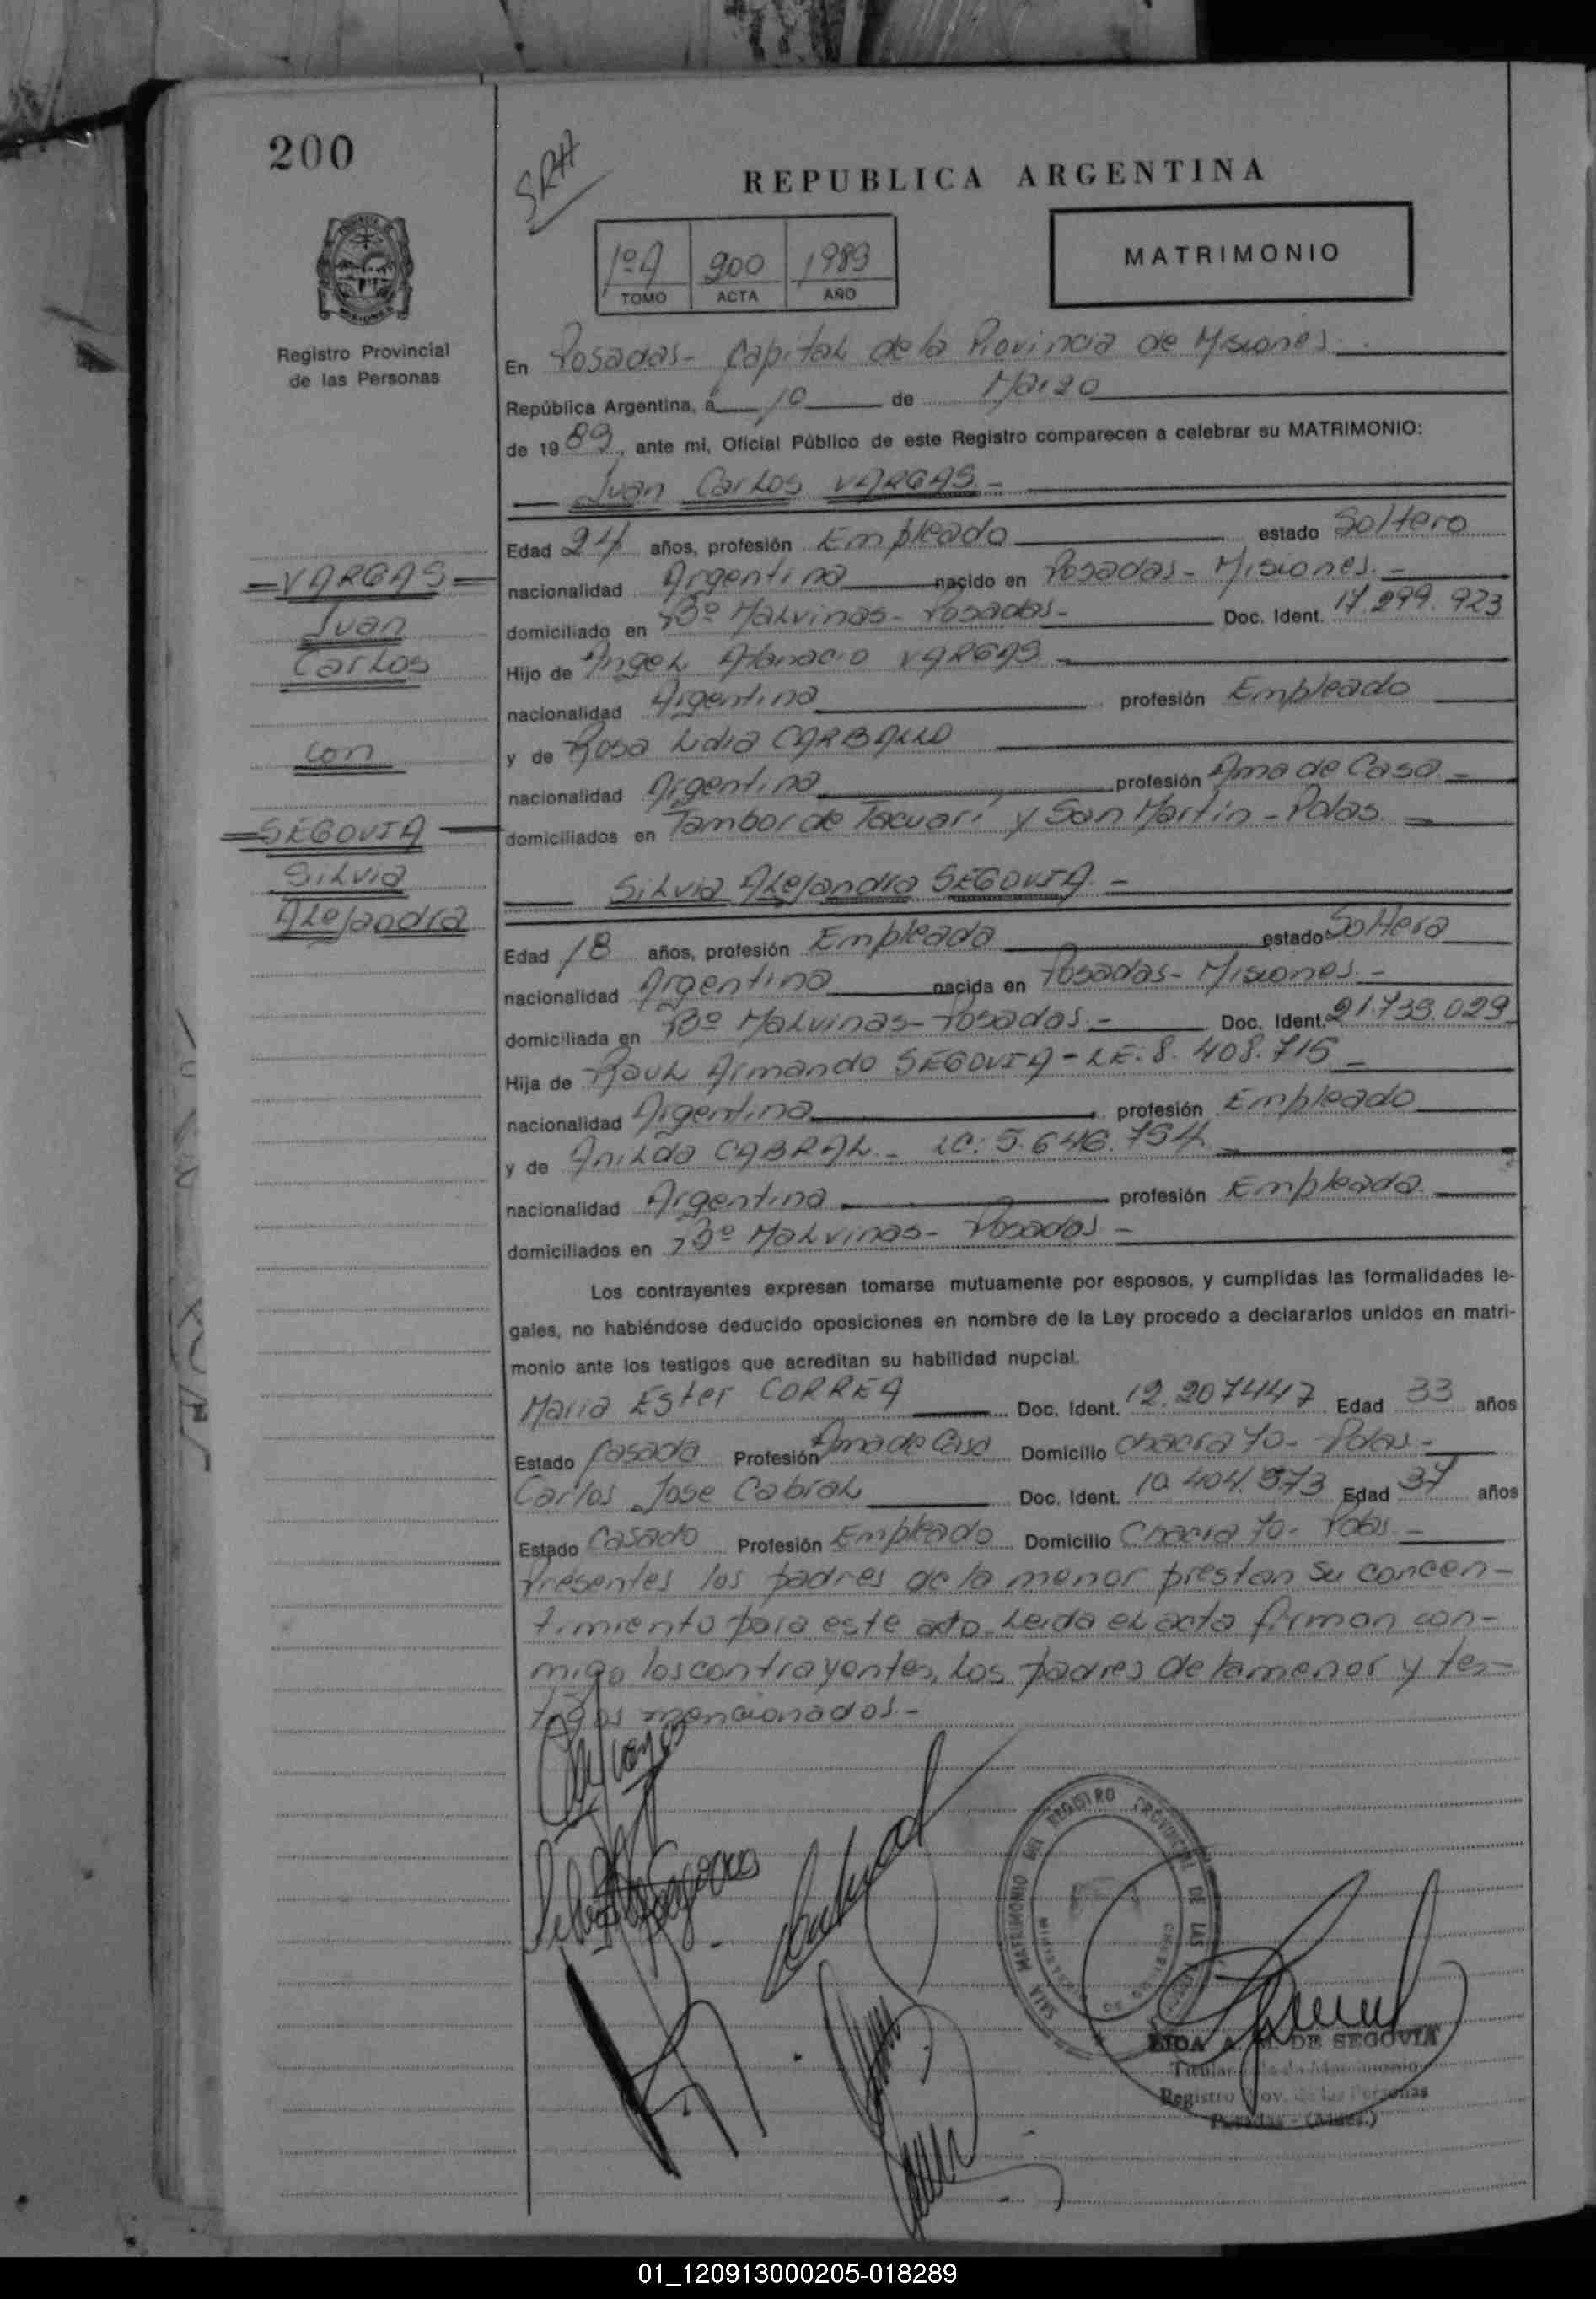 200
SRH
REPUBLICA ARGENTINA
1º A 200 1989
TOMO ACTA AÑO
MATRIMONIO
Registro Provincial
de las Personas
En Posadas- Capital de la Provincia de Misiones
República Argentina, á 10 de Marzo
de 1989, ante mi, Oficial Público de este Registro comparecen a celebrar su MATRIMONIO:
Juan Carlos VARGAS.-
Edad 24 años, profesión Empleado estado Soltero
nacionalidad Argentina nacido en Posadas- Misiones.-
domiciliado en Bº Malvinas- Posadas- Doc. Ident. 17.299.923
Hijo de Angel Atanacio VARGAS
nacionalidad Argentina profesión Empleado
y de Rosa Lidia CARBALLO
nacionalidad Argentina profesión Ama de Casa-
domiciliados en Tambor de Tacuarí y San Martín-Pdas.
Silvia Alejandra SEGOVIA.-
Edad 18 años, profesión Empleada estado Soltera
nacionalidad Argentina nacida en Posadas- Misiones.-
domiciliada en Bº Malvinas- Posadas.- Doc. Ident. 21.739.029
Hija de Raul Armando SEGOVIA- LE: 8.408.715
nacionalidad Argentina profesión Empleado
y de Anilda CABRAL- LC: 5.646.754
nacionalidad Argentina profesión Empleada
domiciliados en Bº Malvinas- Posadas-
VARGAS
Juan
Carlos
con
SEGOVIA
Silvia
Alejandra
Los contrayentes expresan tomarse mutuamente por esposos, y cumplidas las formalidades le-
gales, no habiéndose deducido oposiciones en nombre de la Ley procedo a declararlos unidos en matri-
monio ante los testigos que acreditan su habilidad nupcial.
Maria Ester CORREA Doc. Ident. 12.207447 Edad 33 años
Estado Casada Profesión Ama de Casa Domicilio chacra 70- Pdas-
Carlos Jose Cabral Doc. Ident. 10.404.973 Edad 37 años
Estado Casado Profesión Empleado Domicilio Chacra 70- Pdas-
Presentes los padres de la menor prestan su concen-
timiento para este acto. Leida el acta firman con-
migo los contrayentes, los padres de la menor y tes-
tigos mencionados.-
SALA MATRIMONIO DEL REGISTRO PROVINCIAL DE LAS
DE SEGOVIA
Titular
Registro Prov. de las Personas
Posadas - (Mnes.)
01_120913000205-018289